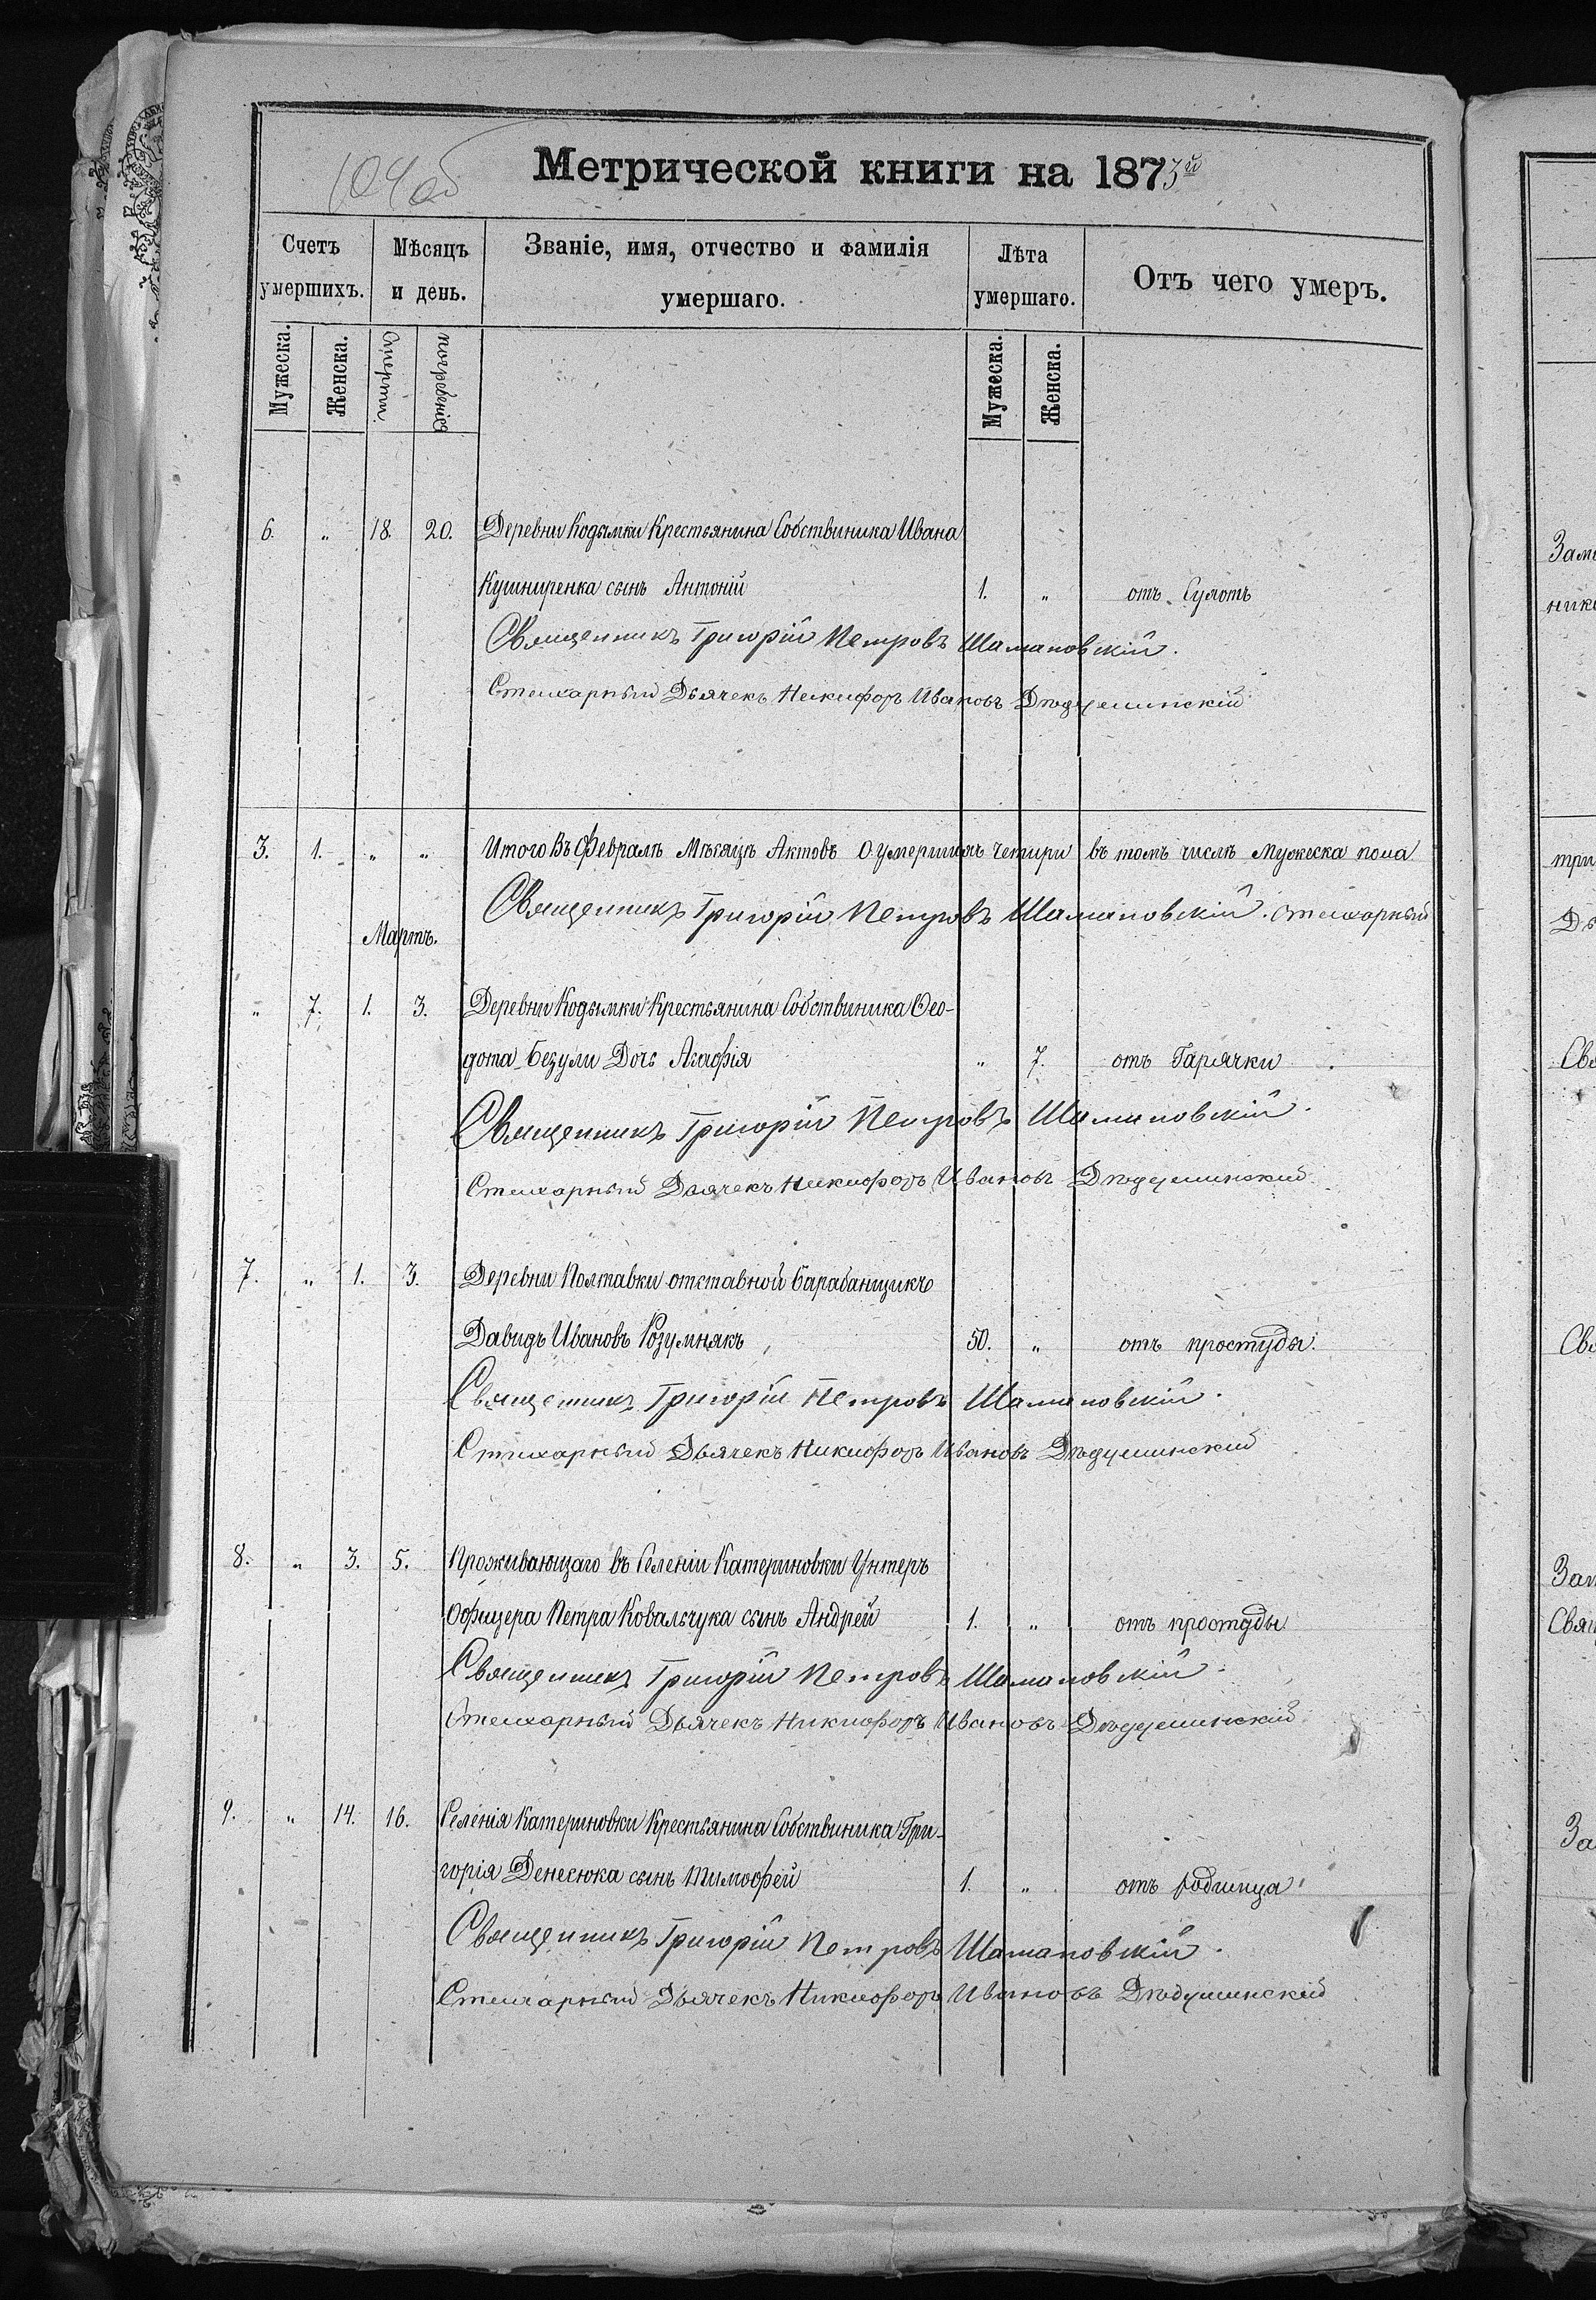 104 об
Метрической книги на 1873й
Счетъ умершихъ.
Мѣсяцъ и день.
Званіе, имя, отчество и фамилія умершаго.
Лѣта умершаго.
Отъ чего умеръ.
Мужеска. Женска. Смерти. погребенія Мужеска. Женска.
6. " 18. 20. Деревни Кодымки Крестьянина Собствиника Ивана
Кушниренка сынъ Антоній 1. " отъ Сухотъ
Священникъ Григорій Петровъ Шамановскій.
Стихарный Дьячекъ Никифоръ Ивановъ Дѣдушинскій
3. 1. " " Итого Въ Февралѣ Мѣсяцѣ Актовъ О умершихъ четири въ томъ числѣ Мужеска пола
Священникъ Григорій Петровъ Шамановскій. Стихарный
Мартъ.
" 7. 1. 3. Деревни Кодымки Крестьянина Собствиника Ѳео-
дота Безули Дочь Агафія " 7. отъ Гарячки
Священникъ Григорій Петровъ Шамановскій.
Стихарный Дьячекъ Никифоръ Ивановъ Дѣдушинский
7. " 1. 3. Деревни Полтавки отставной Барабанщикъ
Давидъ Ивановъ Розумнякъ 50. " отъ простуды.
Священникъ Григорій Петровъ Шамановскій.
Стихарный Дьячекъ Никифоръ Ивановъ Дѣдушинский
8. " 3. 5. Проживающаго въ Селеніи Катериновки Унтеръ
Офицера Петра Ковальчука сынъ Андрей 1. " отъ простуды
Священникъ Григорій Петровъ Шамановскій.
Стихарный Дьячекъ Никифоръ Ивановъ Дѣдушинскій
9. " 14. 16. Селенія Катериновки Крестьянина Собствиника Гри-
горія Денесюка сынъ Тимофей 1. " отъ родимца
Священникъ Григорій Петровъ Шамановскій.
Стихарный Дьячекъ Никифоръ Ивановъ Дѣдушинский
три